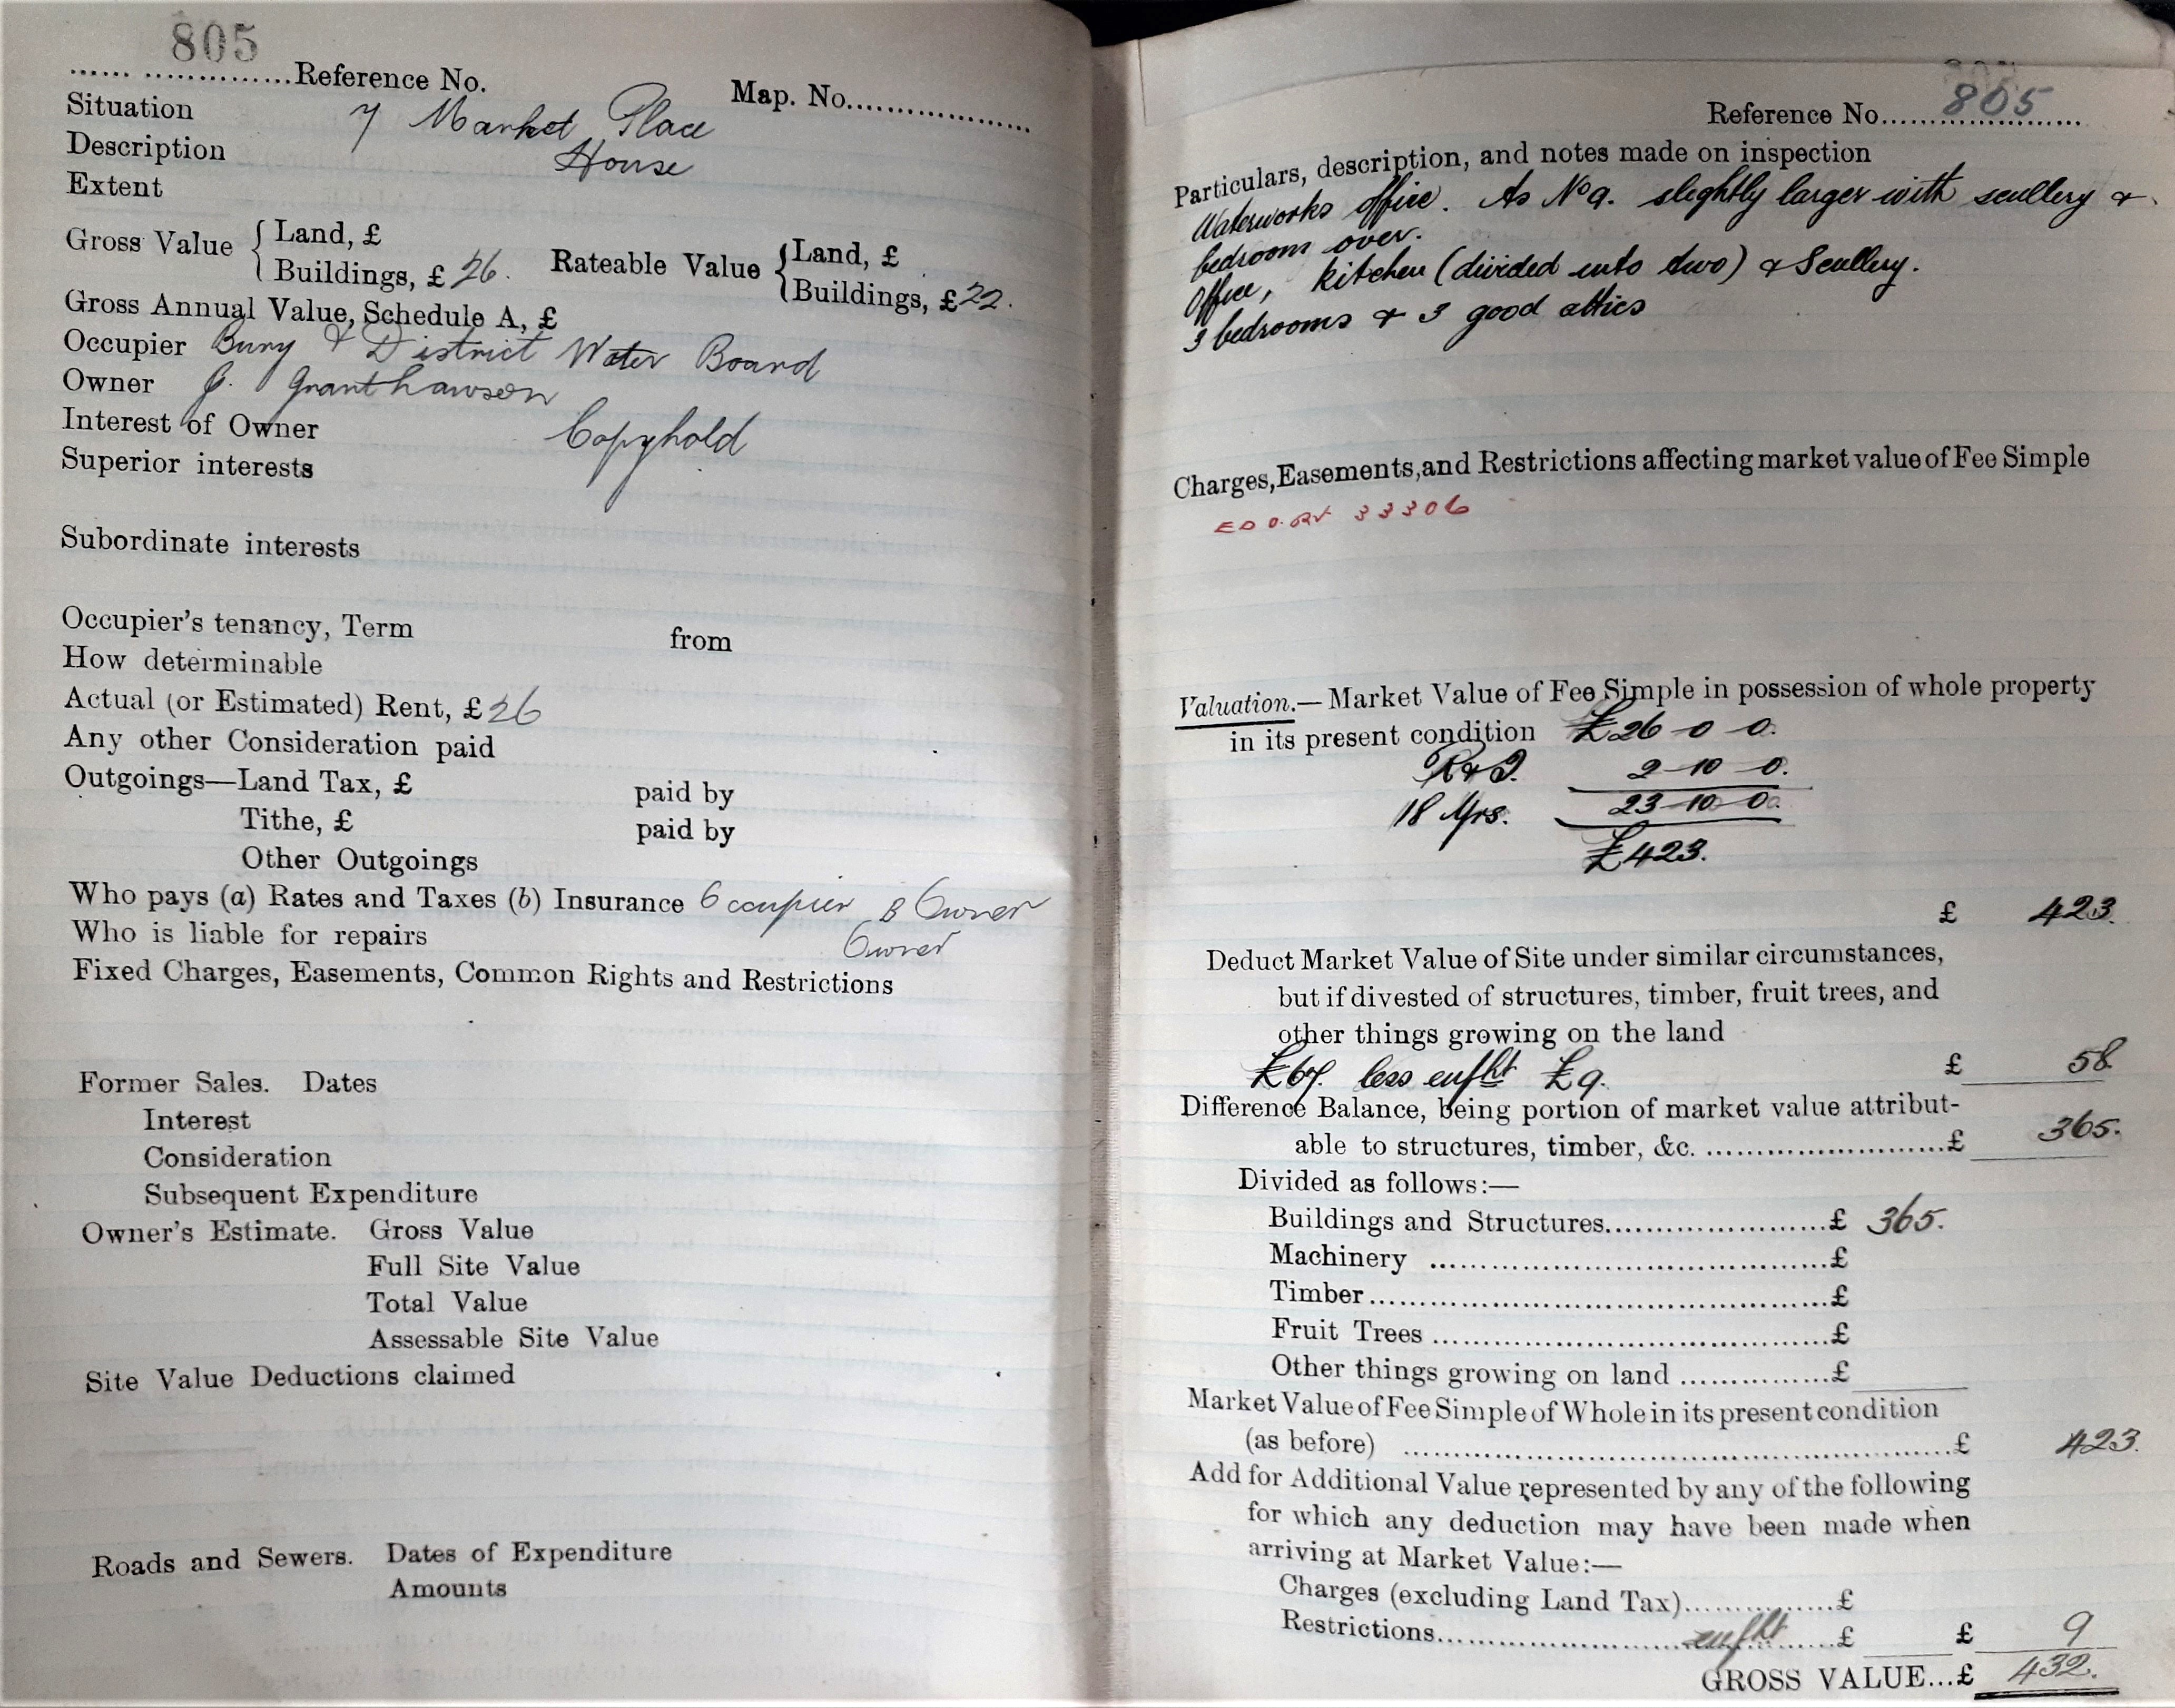 805
...... ...............Reference No.
Map. No.....................
Situation 7 Market Place
Description House
Extent
Gross Value { Land, £
Buildings, £ 26.
Rateable Value { Land, £
Buildings, £22.
Gross Annual Value, Schedule A, £
Occupier Bury & District Water Board
Owner J. Granthawson
Interest of Owner Copyhold
Superior interests
Subordinate interests
Occupier's tenancy, Term from
How determinable
Actual (or Estimated) Rent, £26
Any other Consideration paid
Outgoings—Land Tax, £ paid by
Tithe, £ paid by
Other Outgoings
Who pays (a) Rates and Taxes (b) Insurance Occupier B Owner
Who is liable for repairs Owner
Fixed Charges, Easements, Common Rights and Restrictions
Former Sales. Dates
Interest
Consideration
Subsequent Expenditure
Owner's Estimate. Gross Value
Full Site Value
Total Value
Assessable Site Value
Site Value Deductions claimed
Roads and Sewers. Dates of Expenditure
Amounts
Reference No....805....
Particulars, description, and notes made on inspection
Waterworks office. As No 9. slightly larger with scullery &
bedroom over.
Office, kitchen (divided into two) & Scullery.
3 bedrooms & 3 good attics
Charges, Easements, and Restrictions affecting market value of Fee Simple
33306
Valuation.— Market Value of Fee Simple in possession of whole property
in its present condition £26-0-0.
R & I. 2-10-0.
18 Yrs. 23-10-0.
£423.
£ 423.
Deduct Market Value of Site under similar circumstances,
but if divested of structures, timber, fruit trees, and
other things growing on the land
£67. less enfht £9. £ 58.
Difference Balance, being portion of market value attribut-
able to structures, timber, &c. ........................£ 365.
Divided as follows:—
Buildings and Structures......................£ 365.
Machinery ......................................£
Timber.............................................£
Fruit Trees .......................................£
Other things growing on land ...............£
Market Value of Fee Simple of Whole in its present condition
(as before) .....................................................£ 423.
Add for Additional Value represented by any of the following
for which any deduction may have been made when
arriving at Market Value:—
Charges (excluding Land Tax)...............£
Restrictions.......................enfht......£ £ 9
GROSS VALUE...£ 432.